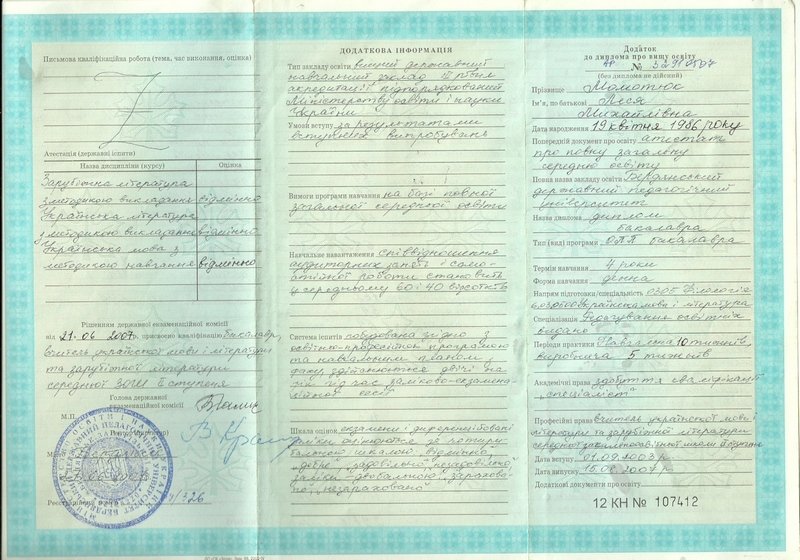 Письмова кваліфікаційна робота (тема, час виконання, оцінка)
Атестація (державні іспити)
Назва дисципліни (курсу) Оцінка
Зарубіжна література
з методикою викладання відмінно
Українська література
з методикою викладання відмінно
Українська мова з
методикою навчання відмінно
Рішенням державної екзаменаційної комісії
від 21.06 2007 присвоєно кваліфікацію бакалавр,
вчитель української мови і літератури
та зарубіжної літератури
середньої ЗОШ ІІ ступеня
Голова державної
екзаменаційної комісії
М.П.
326
ДОДАТКОВА ІНФОРМАЦІЯ
Тип закладу освіти вищий державний
навчальний заклад IV рівня
акредитації підпорядкований
Міністерству освіти і науки
України
Умови вступу за результатами
вступних випробувань
Вимоги програми навчання на базі повної
загальної середньої освіти
Навчальне навантаження співвідношення
аудиторних занять і само-
стійної роботи становить
у середньому 60 і 40 відсотків
Система іспитів побудована згідно з
освітньо-професійною програмою
та навчальним планом,
здійснюється двічі на
рік під час заліково-екзамена-
ційної сесії
Шкала оцінок екзамени і диференційовані
заліки оцінюються за чотири-
бальною шкалою: відмінно,
добре, задовільно, незадовільно
заліки - двобальною: зарахова-
но, незараховано
Додаток
до диплома про вищу освіту
№ 32910507
(без диплома не дійсний)
Прізвище Момотюк
Ім'я, по батькові Леся
Михайлівна
Дата народження 19 квітня 1986 року
Попередній документ про освіту атестат
про повну загальну
середню освіту
Повна назва закладу освіти Бердянський
державний педагогічний
університет
Назва диплома диплом
бакалавра
Тип (вид) програми ОПП бакалавра
Термін навчання 4 роки
Форма навчання денна
Напрям підготовки/спеціальність 0305 Філологія
6.030500 Українська мова і література
Спеціалізація Редагування освітніх
видань
Періоди практики Навчальна 10 тижнів,
виробнича 5 тижнів
Академічні права здобуття кваліфікації
"спеціаліст"
Професійні права вчитель української мови і
літератури та зарубіжної літератури
середньої загальноосвітньої школи ІІ ступеня
Дата вступу 01.09.2003 р
Дата випуску 15.06.2007 р
Додаткові документи про освіту
12 КН № 107412